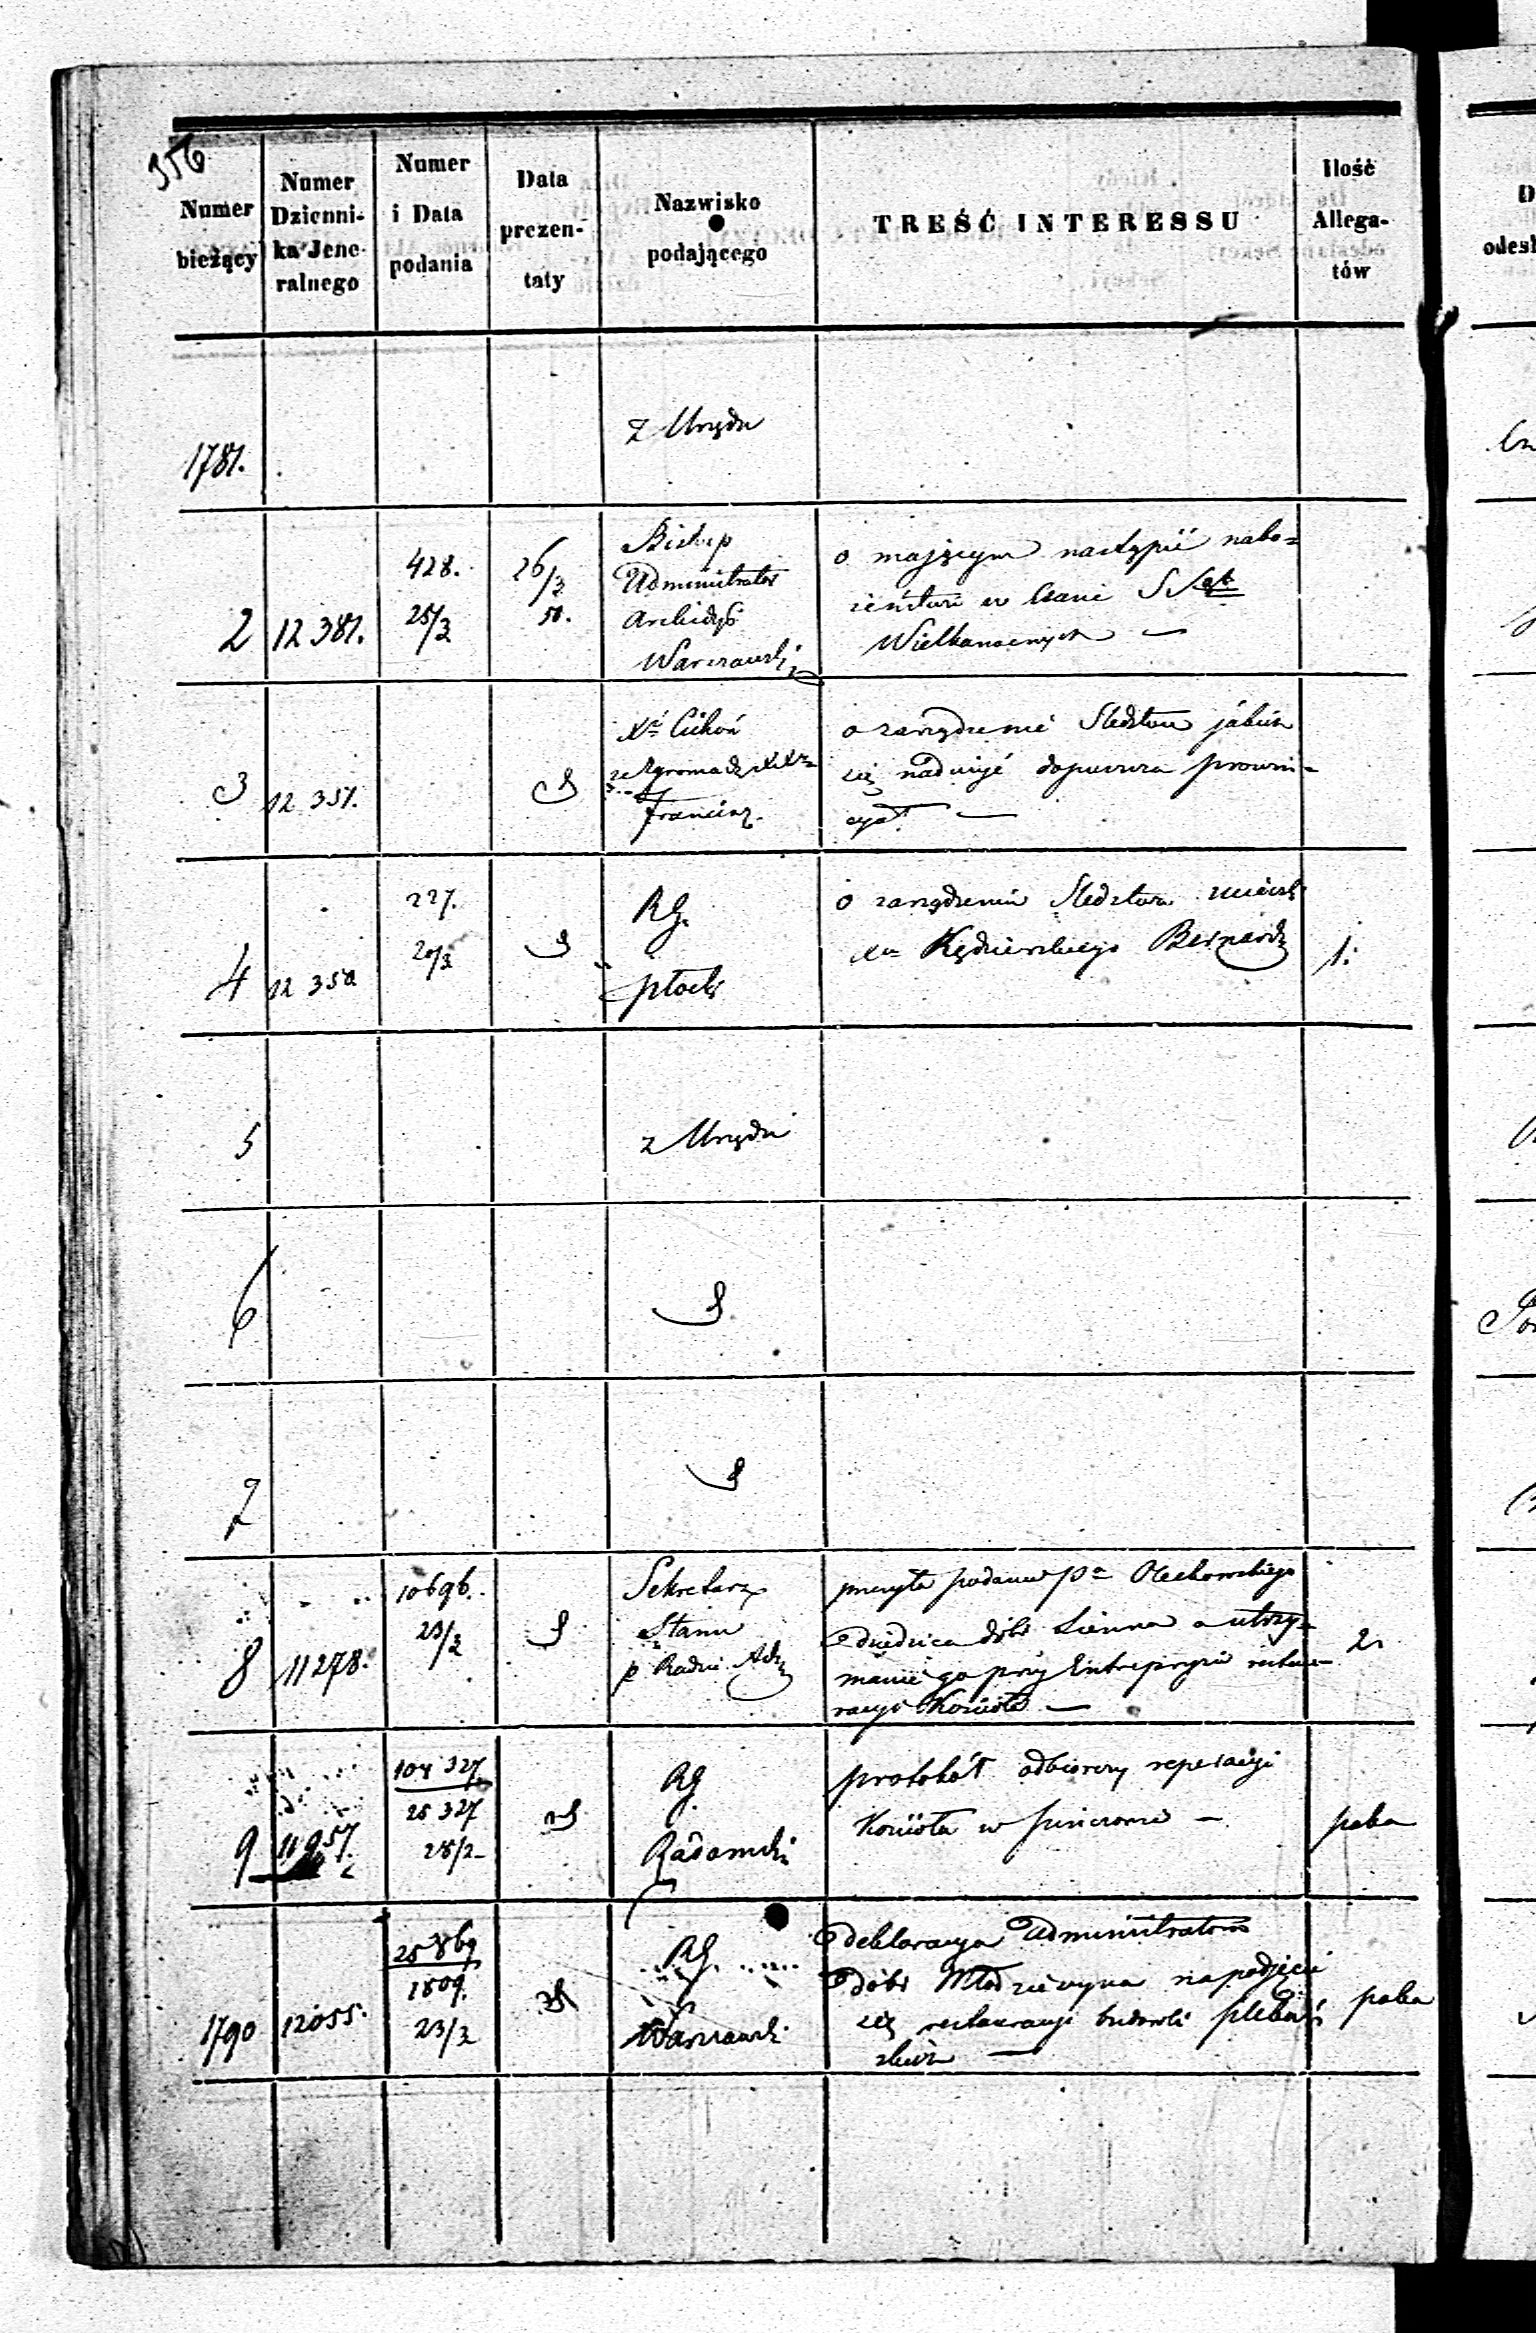 356
Numer bieżący
Numer Dzienni- ka Jene- ralnego
Numer i Data podania
Data prezen- taty
Nazwisko podającego
TREŚĆ INTERESSU
Ilość Allega- tów
1781.
z Urzędu
2
12 381.
428.
25/3
26/3
50.
Biskup
Administrator
Archidyc
Warszawski
o mającym nastąpić nabo=
żeństwie w czasie
Wielkanocnych —
3
12 351.
Xa
Franciszk.
o zarządzenie Śledztwa jakich
się nadużyć dopuszcza prowin=
cyał —
4
12 350
227.
20/3
RG.
płocki
o zarządzeniu Śledztwa
Xa Kędzierskiego Bernard
1.
5
z Urzędu
6
7
8
11278.
10696.
23/3
Sekretarz
Stanu
p Radzie Adz
przesyła podanie Pa Olechowskiego
Dziedzica dóbr Sienna o utrzy=
manie go przy Entrepryzie restau=
racyi Kościoła —
2
9
11957.
104 327
25 327
28/2
RG.
Radomski
protokół odbiorczy reperacyi
Kościoła w Pinczowie —
paka
1790
12055.
25869
1809.
23/3
RG.
Warszawski
deklaracya Administratora
dóbr Młodzieszyna na podjęcie
się restauracyi budowli plebań
skich —
paka